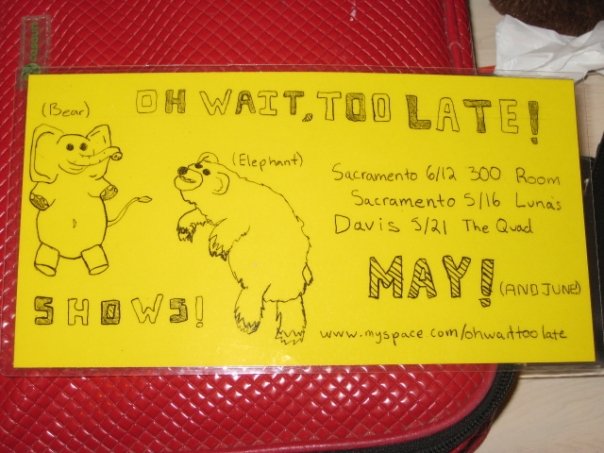 OH WAIT, TOO LATE!
(Bear)
(Elephant)
Sacramento 6/12 300 Room
Sacramento 5/16 Luna's
Davis 5/21 The Quad
MAY! (AND JUNE)
SHOWS!
www.myspace.com/ohwaittoolate